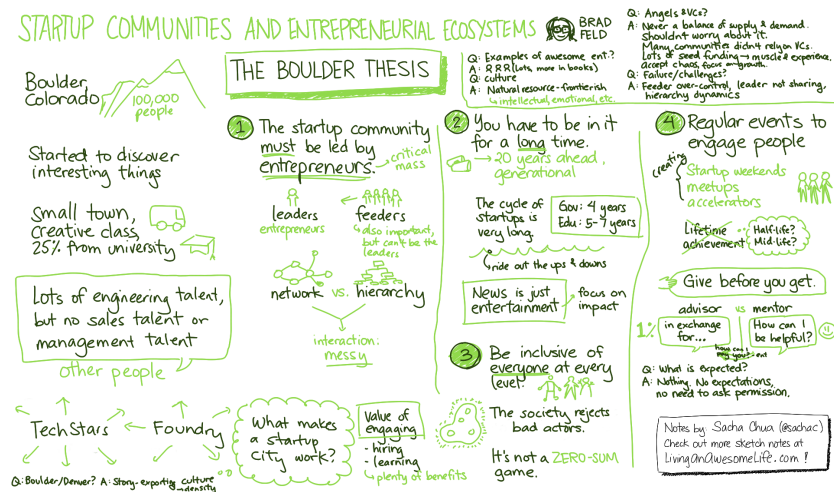 STARTUP COMMUNITIES AND ENTREPRENEURIAL ECOSYSTEMS
BRAD
FELD
Boulder,
Colorado
100,000
people
Started to discover
interesting things
Small town,
creative class,
25% from university
Lots of engineering talent,
but no sales talent or
management talent
other people
TechStars
Foundry
Q: Boulder/Denver? A: Story-exporting culture
→ density
THE BOULDER THESIS
1 The startup community
must be led by
entrepreneurs.
→ critical
mass
leaders
entrepreneurs
feeders
also important,
but can't be the
leaders
network vs. hierarchy
interaction:
messy
What makes
a startup
city work?
Value of
engaging
- hiring
- learning
plenty of benefits
Q: Examples of awesome ent.?
A: RRR (Lots, more in books)
Q: culture
A: Natural resource-frontierish
intellectual, emotional, etc.
2 You have to be in it
for a long time.
→ 20 years ahead,
generational
The cycle of
startups is
very long.
Gov: 4 years
Edu: 5-7 years
ride out the ups & downs
News is just
entertainment
focus on
impact
3 Be inclusive of
everyone at every
level.
The society rejects
bad actors.
It's not a ZERO-SUM
game.
Q: Angels & VCs?
A: Never a balance of supply & demand.
Shouldn't worry about it.
Many communities didn't rely on VCs.
Lots of seed funding → muscle & experience.
accept chaos, focus on growth.
Q: Failure/challenges?
A: Feeder over-control, leader not sharing,
hierarchy dynamics
4 Regular events to
engage people
creating
Startup weekends
meetups
accelerators
Lifetime
achievement
Half-life?
Mid-life?
Give before you get.
advisor vs mentor
1%
in exchange
for...
How can I
be helpful?
Q: What is expected?
A: Nothing. No expectations,
no need to ask permission.
Notes by Sacha Chua (@sachac)
Check out more sketch notes at
LivingAnAwesomeLife.com !